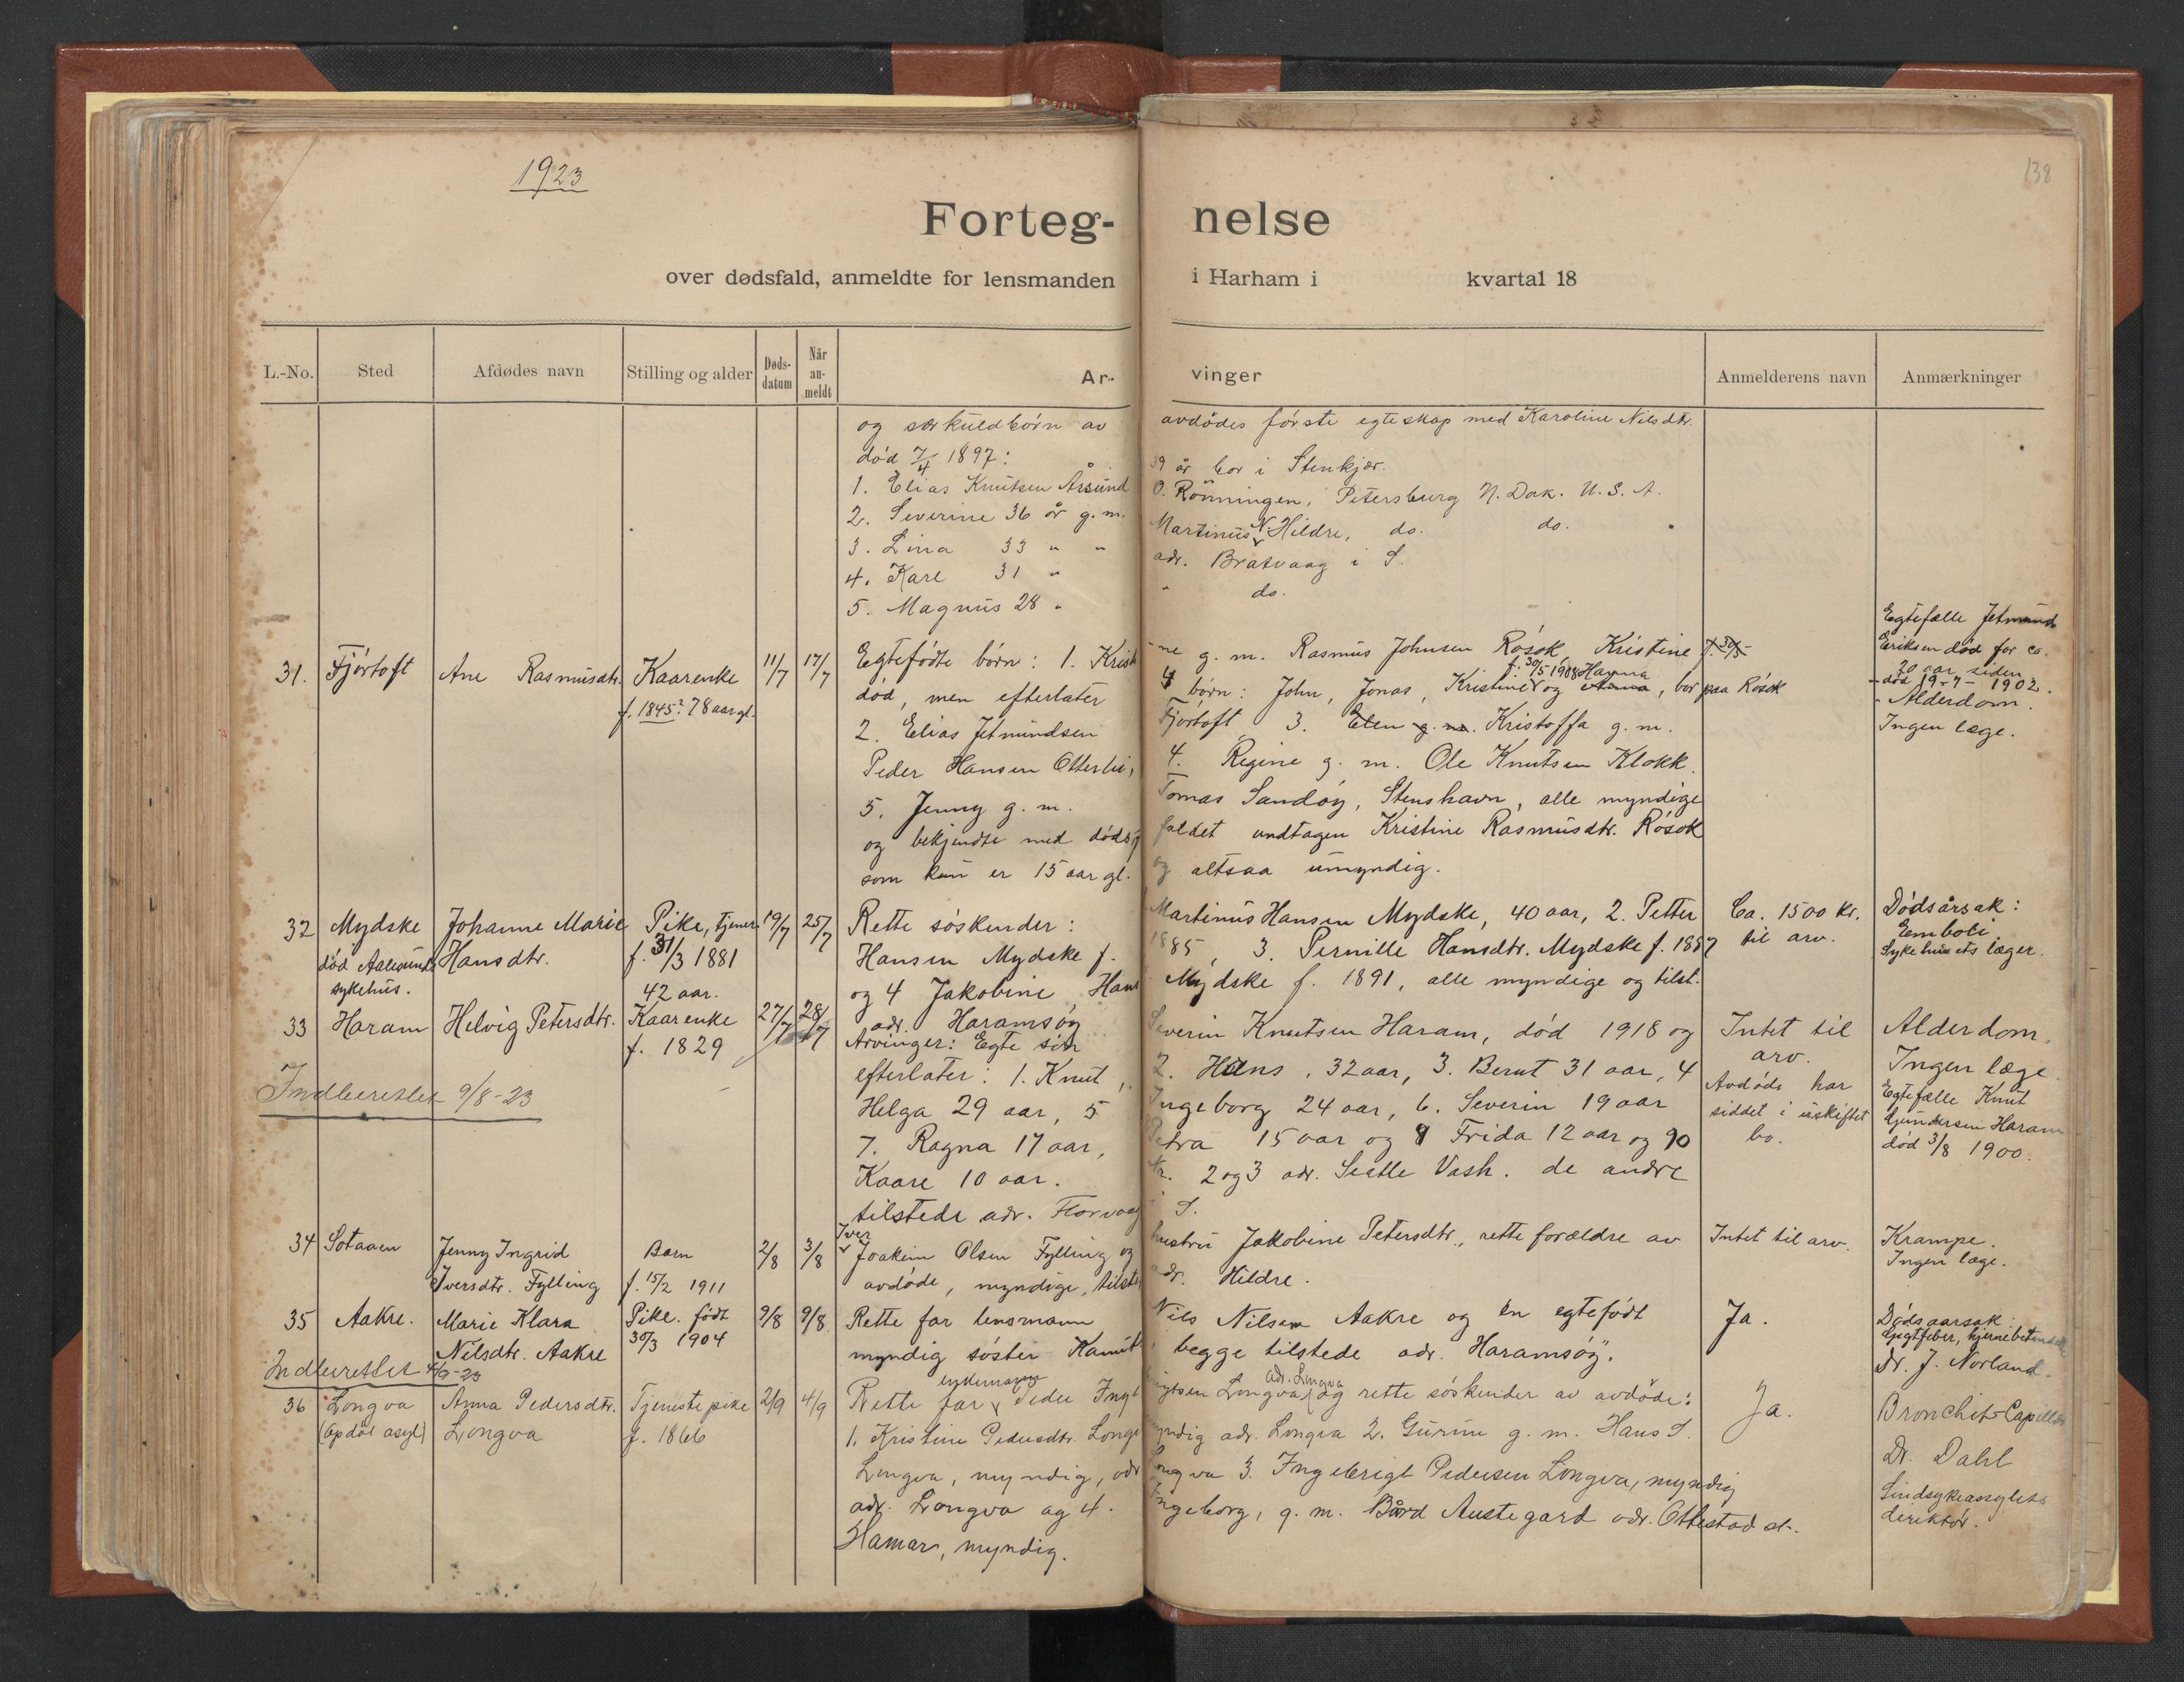 1923
138
Forteg- nelse
over dødsfald, anmeldte for lensmanden i Harham i kvartal 18
L.-No. Sted Afdødes navn Stilling og alder Døds-datum Når an-meldt Ar- vinger Anmelderens navn Anmærkninger
og særkuldbörn av avdödes förste egteskap med Karoline Nilsdtr.
död 7/4 1897:
1. Elias Knutsen Årsund 39 år bor i Stenkjær.
2. Severine 36 år g. m. O. Rönningen, Petersburg N. Dak. U. S. A.
3. Lina 33 " " Martinus N. Hildre, do. do.
4. Kare 31 " adr. Bratvaag i S.
5. Magnus 28 " " do.
31. Fjörtoft Ane Rasmusdtr. Kaarenke 11/7 17/7 Egtefödte börn: 1. Krist -ne g. m. Rasmus Johnsen Rösok Kristine f. 30/5 Egtefælle Jetmund
f. 1845? 78 aar gl. död, men efterlater 4 börn: John, Jonas, Kristine f. 30/5 1908 og Anna Hanna, bor paa Rösok Eriksen död for ca. 20 aar siden
- död 19-7-1902.
2. Elias Jetmundsen Fjörtoft 3. Elen g. m. Kristoffa g. m. - Alderdom.
Ingen læge.
Peder Hansen Otterlei, 4. Regine g. m. Ole Knutsen Klokk.
5. Jenny g. m. Tomas Sandöy, Stenshavn, alle myndige
og bekjendte med döds- faldet undtagen Kristine Rasmusdtr. Rösok
som kun er 15 aar gl. og altsaa umyndig.
32 Mydske Johanne Marie Pike, tjener 19/7 25/7 Rette söskender: Martinus Hansen Mydske, 40 aar, 2. Petter Ca. 1500 kr. Dödsårsak:
död Aalesunds Hansdtr. f. 31/3 1881 Hansen Mydske f. 1885, 3. Pernille Hansdtr. Mydske f. 1887 til arv. Emboli.
sykehus. 42 aar. og 4 Jakobine Hans Mydske f. 1891, alle myndige og tilst. Sykehusets læger.
adr. Haramsöy
33 Haram Helvig Petersdtr. Kaarenke 27/7 28/7 Arvinger: Egte sön Severin Knutsen Haram, död 1918 og Intet til arv. Alderdom.
f. 1829 efterlater: 1. Knut, 2. Hans, 32 aar, 3. Bernt 31 aar, 4 Avdöde har Ingen læge
Indberettet 9/8-23 Helga 29 aar, 5 Ingeborg 24 aar, 6. Severin 19 aar siddet i uskiftet Egtefælle Knut
7. Ragna 17 aar, Petra 15 aar og 9 Frida 12 aar og 10 bo. Gundersen Haram
Kaare 10 aar. Nr. 2 og 3 adr. Seatle Vash. de andre död 3/8 1900.
tilstede adr. i S.
34 Jenny Ingrid Barn 2/8 3/8 Iver Joakim Olsen Fylling og hustru Jakobine Petersdtr., rette forældre av Intet til arv. Krampe.
Iversdtr. Fylling f. 15/2 1911 avdöde, myndige, tilst adr. Hildre. Ingen læge.
35 Aakre. Marie Klara Pike. födt 9/8 9/8 Rette far lensmann Nils Nilsen Aakre og en egtefödt Ja. Dödsaarsak:
Nilsdtr. Aakre 30/3 1904 myndig söster begge tilstede adr. Haramsöy. hjernebetendelse
Indberettet 4/9-23 Dr. J. Norland.
36 Longva Anna Pedersdtr. Tjenestepike 2/9 4/9 Rette far Peder Ingebrigtsen Longva, adr. Longva og rette söskender av avdöde: Ja. Bronchit-Capillar
(Opdöl asyl) Longva f. 1866 1. Kristine Pedersdtr. Longva myndig adr. Longva 2. Gurine g. m. Hans S. Dr. Dahl
Longva, myndig, adr Longva 3. Ingebrigt Pedersen Longva, myndig Sindsykeassylets
adr. Longva og 4. Ingeborg, g. m. Bård Austegard adr. Ottestad st. direktör.
Hamar, myndig.